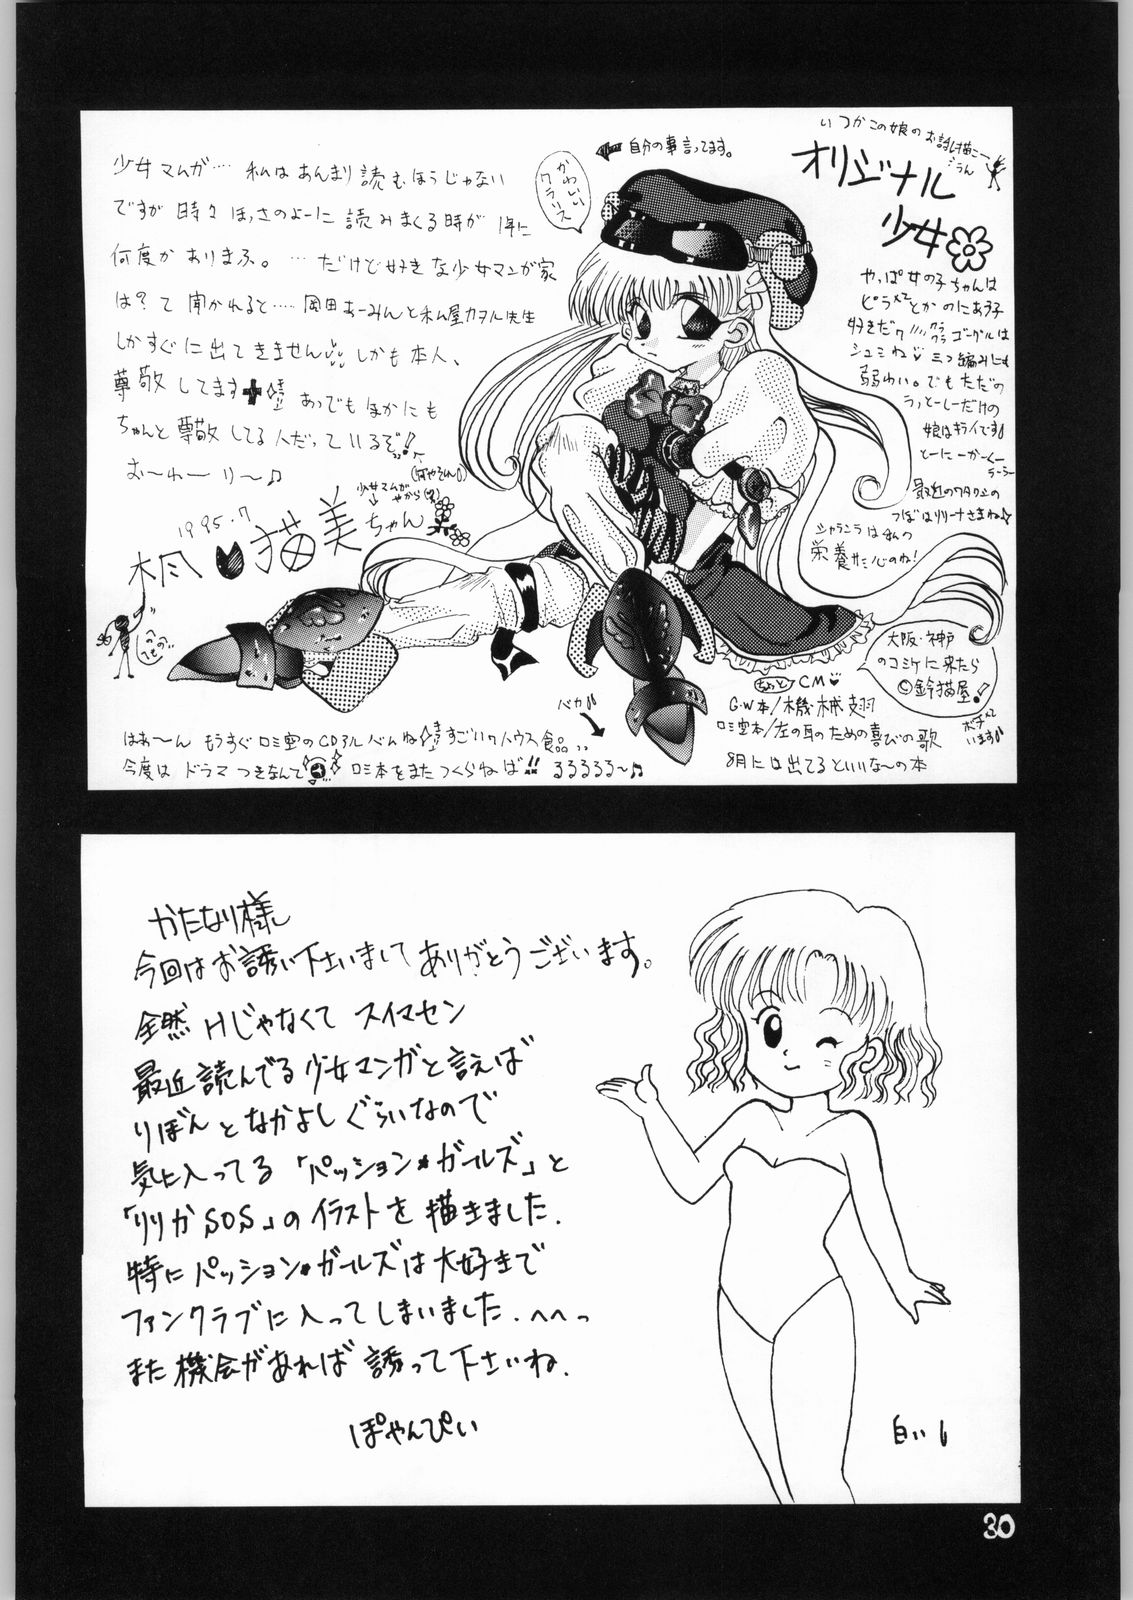 少女マムガ… 私はあんまり読むほうじゃない
ですが 時々 ほっさのよーに 読みまくる時が 1年に
何度か ありまふ。 …だけど好きな少女マンガ家
は?て 聞かれると…… 岡田あーみんと 私屋カヲル先生
しかすぐに出てきません しかも本人、
尊敬してます あっでもほかにも
ちゃんと尊敬してる人だっているぞ!
お〜わ〜り〜♪
少女マムガ
やから(笑)
1995.7
猫美ちゃん
自分の事言ってます。
かわいい
クラリス
いつかこの娘のお話し描こー
オリジナル
少女
やっぱ女の子ちゃんは
好きだワ
ゴーグルは
シュミね 三つ編みにも
弱わい。でもただの
娘はキライです
とーにーかーくー
らーらー
最近のワタクシの
つぼはリリーナさまね☆
シャランラは私の
栄養サミ心のね!
大阪・神戸
のコミケに来たら
©鈴猫屋!
ボチって
います
ちょっと CM
G・W本/機械翅
ロミ空本/左の耳のための喜びの歌
8月には出てるといいな〜の本
バカ
はぁ〜ん もうすぐロミ空のCDアルバムね すごいワ ハウス食品…
今度は ドラマつきなんで ロミ本をまたつくらねば!! るるるるる〜♪
かたなり様
今回はお誘い下さいまして ありがとうございます。
全然 Hじゃなくて スイマセン
最近読んでる少女マンガと言えば
りぼんとなかよしぐらいなので
気に入ってる「パッション*ガールズ」と
「りりかSOS」のイラストを描きました.
特にパッション*ガールズは大好きで
ファンクラブに入ってしまいました.へへっ
また機会があれば 誘って下さいね.
ぽやんぴぃ
白いし
30